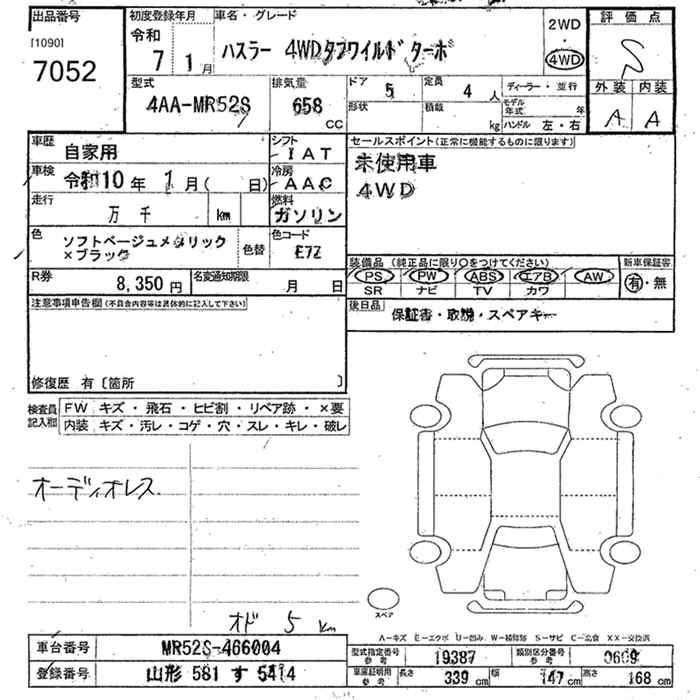 出品番号
[1090]
7052
初度登録年月
令和
7 1月
車名・グレード
ハスラー 4WDタフワイルド ターボ
2WD
・
4WD
評価点
S
外装 内装
A A
型式
4AA-MR52S
排気量
658
CC
ドア
5
定員
4 人
形状
積載
kg
ディーラー・並行
モデル年式 年
ハンドル 左・右
車歴
自家用
シフト
IAT
車検
令和10年 1月( 日)
冷房
AAC
走行
万 千 km
燃料
ガソリン
色
ソフトベージュメタリック
×ブラック
色替
色コード
E7Z
R券
8,350 円
名変通知期限
月 日
セールスポイント(正常に機能するものに限ります)
未使用車
4WD
装備品 (純正品に限り○をつけてください)
PS PW ABS エアB AW
SR ナビ TV カワ
新車保証書
有・無
後日品
保証書・取説・スペアキー
注意事項申告欄(不具合内容等は具体的に記入して下さい)
修復歴 有〔箇所 〕
検査員記入欄
FW キズ・飛石・ヒビ割・リペア跡・×要
内装 キズ・汚レ・コゲ・穴・スレ・キレ・破レ
オーディオレス
オド 5 km
スペア
A-キズ E-エクボ U-凹み W-補修跡 S-サビ C-腐食 XX-交換済
車台番号
MR52S-466004
登録番号
山形 581 す 5414
型式指定番号 参考
19387
類別区分番号 参考
0609
車庫証明用 参考
長さ 339 cm
幅 147 cm
高さ 168 cm